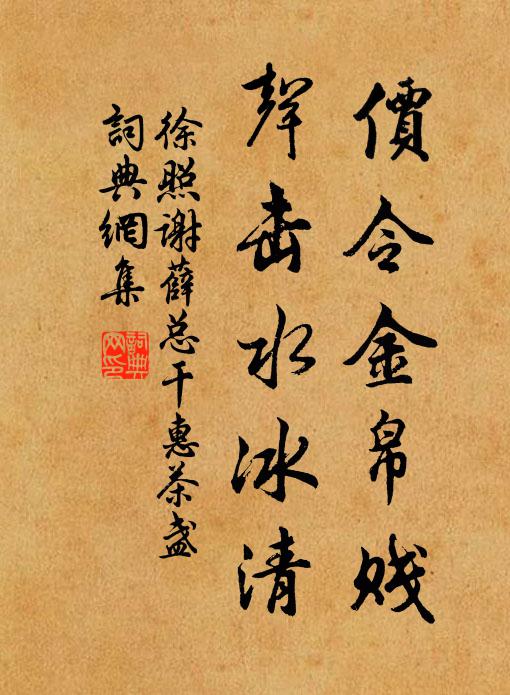 價令金帛賤
聲击水冰清
徐照謝薛总干惠茶盏
詞典網集
詞典
网印